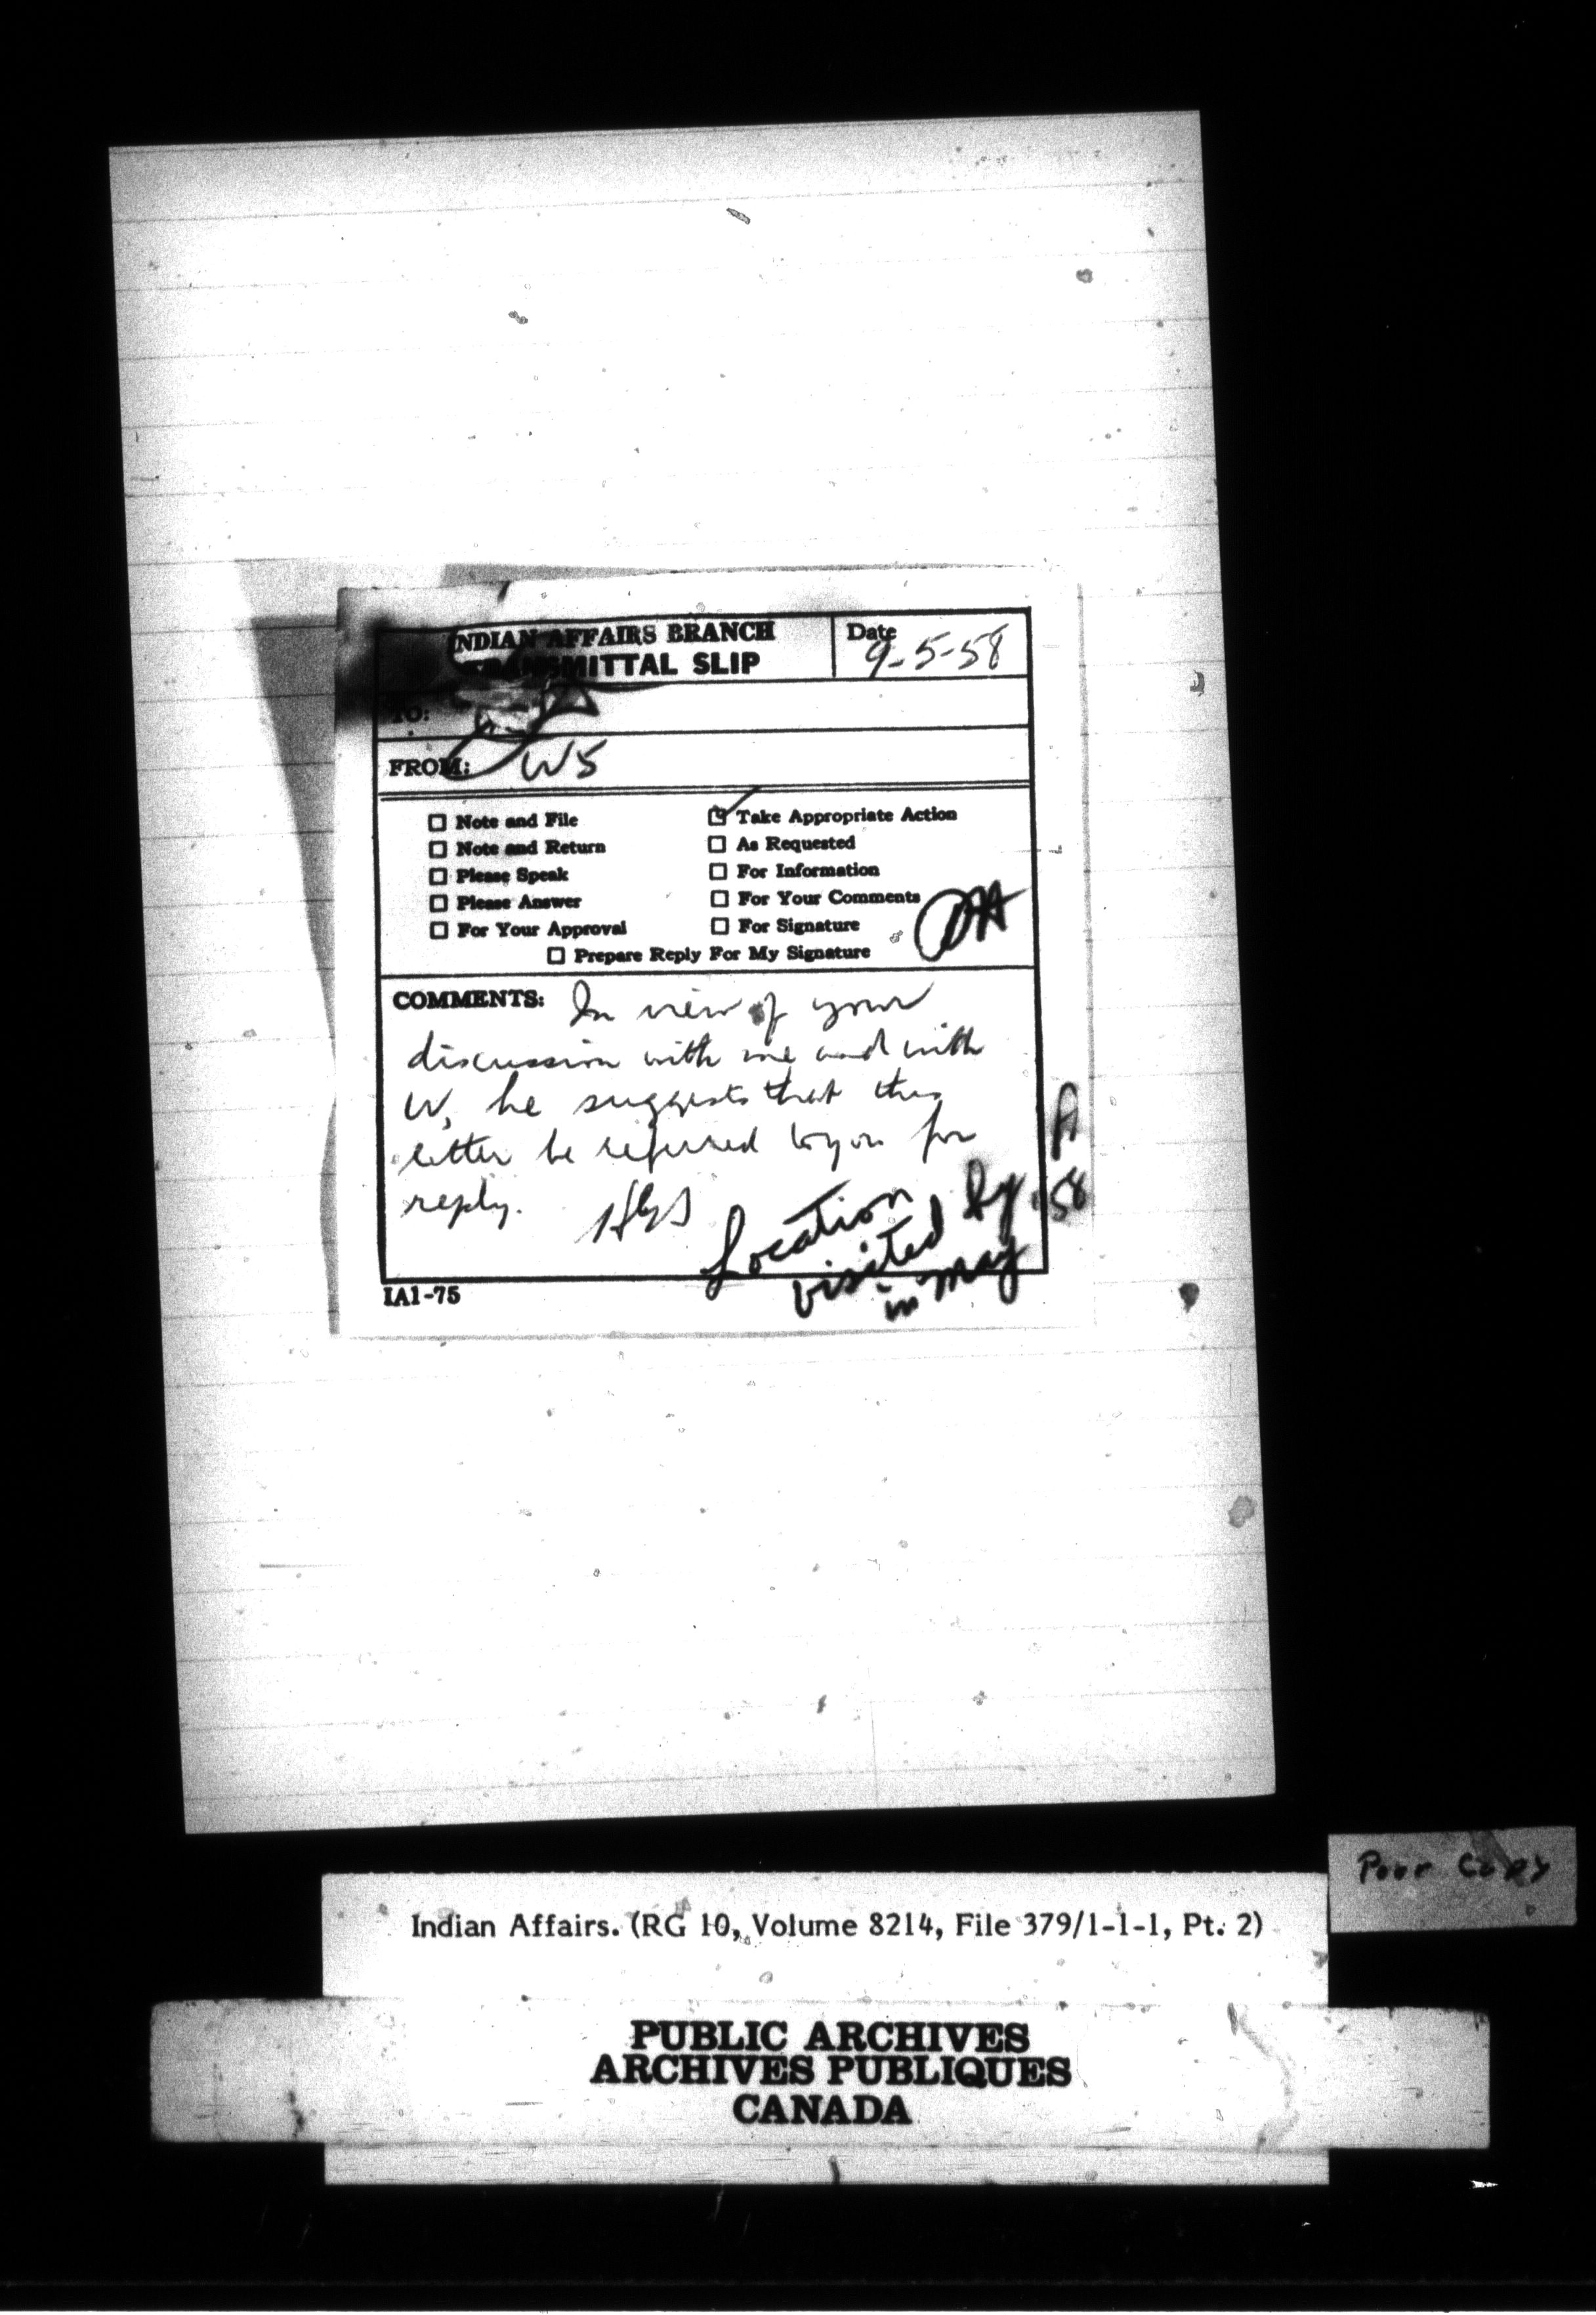 INDIAN AFFAIRS BRANCH
TRANSMITTAL SLIP
Date
9-5-58
TO:
FROM: WS
Note and File
Note and Return
Please Speak
Please Answer
For Your Approval
Take Appropriate Action
As Requested
For Information
For Your Comments
For Signature
Prepare Reply For My Signature
COMMENTS: In view of your
discussion with me and with
W, he suggests that this
letter be referred to you for
reply.
Location
visited by A
in May 58
IA1-75
Poor Copy
Indian Affairs. (RG 10, Volume 8214, File 379/1-1-1, Pt. 2)
PUBLIC ARCHIVES
ARCHIVES PUBLIQUES
CANADA